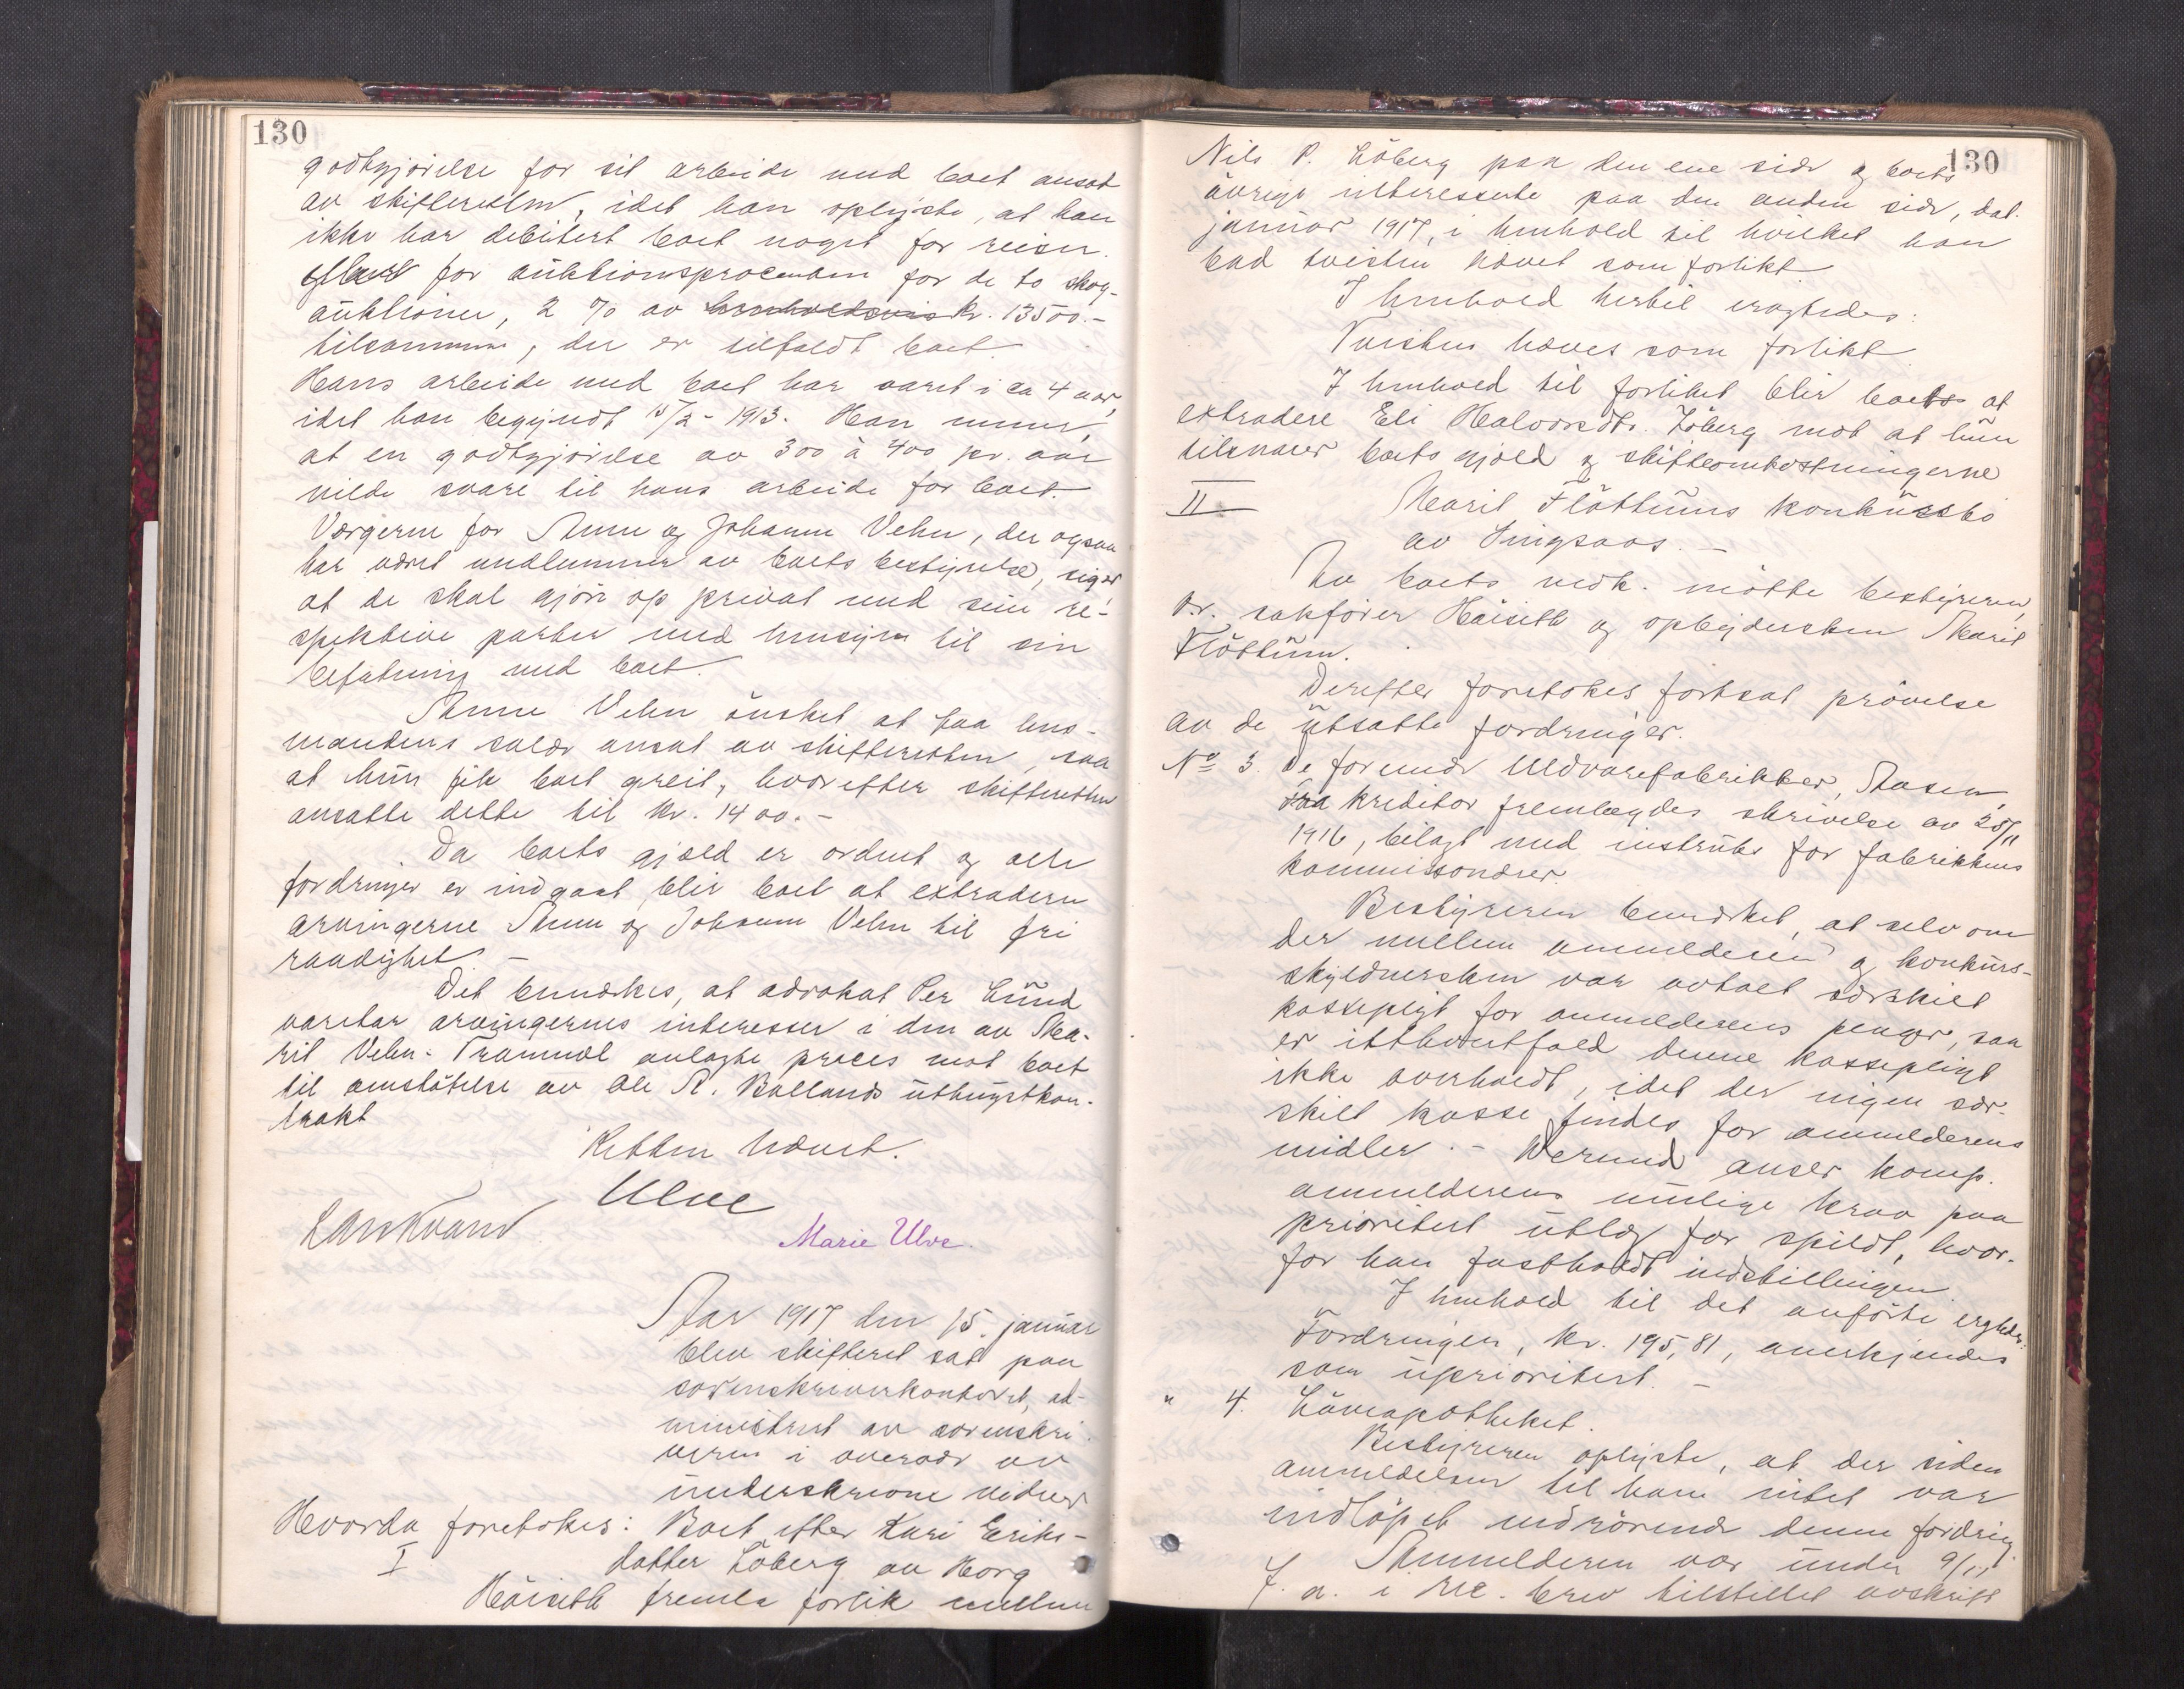 130
godtgjörelse for sit arbeide med boet ansat
av skifteretten, idet han oplyste, at han
ikke har debitert boet noget for reiser.
for auktionsprocenten for de to skog-
auktioner, 2 % av kr. 13500.-
tilsammen, der er tilfaldt boet.
Hans arbeide med boet har varet i ca 4 aar,
idet han begyndt 15/2 - 1913. Han mener,
at en godtgjörelse av 300 à 400 pr. aar
vilde svare til hans arbeide for boet.
Værgerne for Anne og Johanne Vehn, der ogsaa
har været medlemmer av boets bestyrelse, siger,
at de skal gjöre op privat med sine re-
spektive parter med hensyn til sin
befatning med boet.
Anne Vehn önsket at faa lens-
mandens salær ansat av skifteretten, saa
at hun fik boet greit, hvorefter skifteretten
ansatte dette til kr. 1400.-
Da boets gjæld er ordnet og alle
fordringer er indgaat, blir boet at extradere
arvingerne Anne og Johanne Vehn til fri
raadighet -
Det bemerkes, at advokat Per Lund
varetar arvingernes interesser i den av Ma-
rit Vehn-Tramæl anlagte proces mot boet
til omstötelse av Ole R. Ballands uthugstkon-
trakt
Retten hævet.
Ulve
Marie Ulve.
Aar 1917 den 15. januar
blev skifteret sat paa
sorenskriverkontoret, ad-
ministrert av sorenskri-
veren i overvær av
underskrevne vidner
Hvorda foretokes: Boet efter Kari Eriks-
I datter Löberg av Horg
Höiseth fremla forlik mellem
130
Nils P. Löberg paa den ene side og boets
övrige interessente paa den anden side, dat.
januar 1917, i henhold til hvilket han
bad tvisten hævet som forlikt
I henhold hertil eragtedes:
Tvisten hæves som forlikt
I henhold til forliket blir boets at
extradere Eli Halvorsdtr. Löberg mot at hun
tilsvarer boets gjæld og skifteomkostningerne
II Marit Flöttums konkursbo
av Singsaas. -
For boets vedk. mötte bestyreren,
o.r. sakförer Höiseth og opbydersken Marit
Flöttum.
Derefter foretokes fortsat prövelse
av de utsatte fordringer.
No 3. De forenede Uldvarefabrikker, Aasen,
Fra kreditor fremlagdes skrivelse av 25/11
1916, bilagt med instruks for fabrikkens
kommissionærer.
Bestyreren bemerket, at selv om
der mellem anmelderen og konkurs-
skyldnersken var avtalt særskilt
kassepligt for anmelderens penger, saa
er ialfald denne kassepligt
ikke overholdt, idet der ingen sær-
skilt kasse findes for anmelderens
midler. - Dermed anser komp.
anmelderens mulige krav paa
prioritert utlæg for spildt, hvor-
for han fastholdt indstillingen
I henhold til det anförte eragtedes:
Fordringen, kr. 195,81, anerkjendes
som uprioritert. -
" 4. Löveapotheket.
Bestyreren oplyste, at der siden
anmeldelsen til ham intet var
indlöpet vedrörende denne fordring
Anmelderen var under 9/11
f. a. i rec. brev tilstillet avskrift